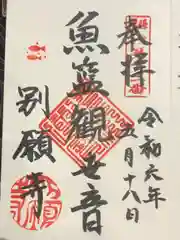 奉拝
令和元年
五月十八日
魚籃観世音
別願寺